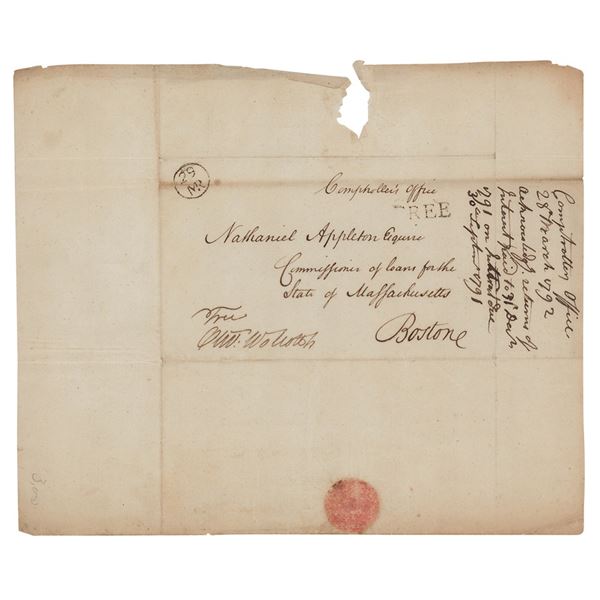 29
MR
Comptroller's Office
FREE
Nathaniel Appleton Esquire
Commissioner of loans for the
State of Massachusetts
Boston
Free
Oliv. Wolcott
Comptrollers Office
28 March 1792
acknowledg returns of
Interest paid to 31 Decr
1791 on due
30 Septemr 1791